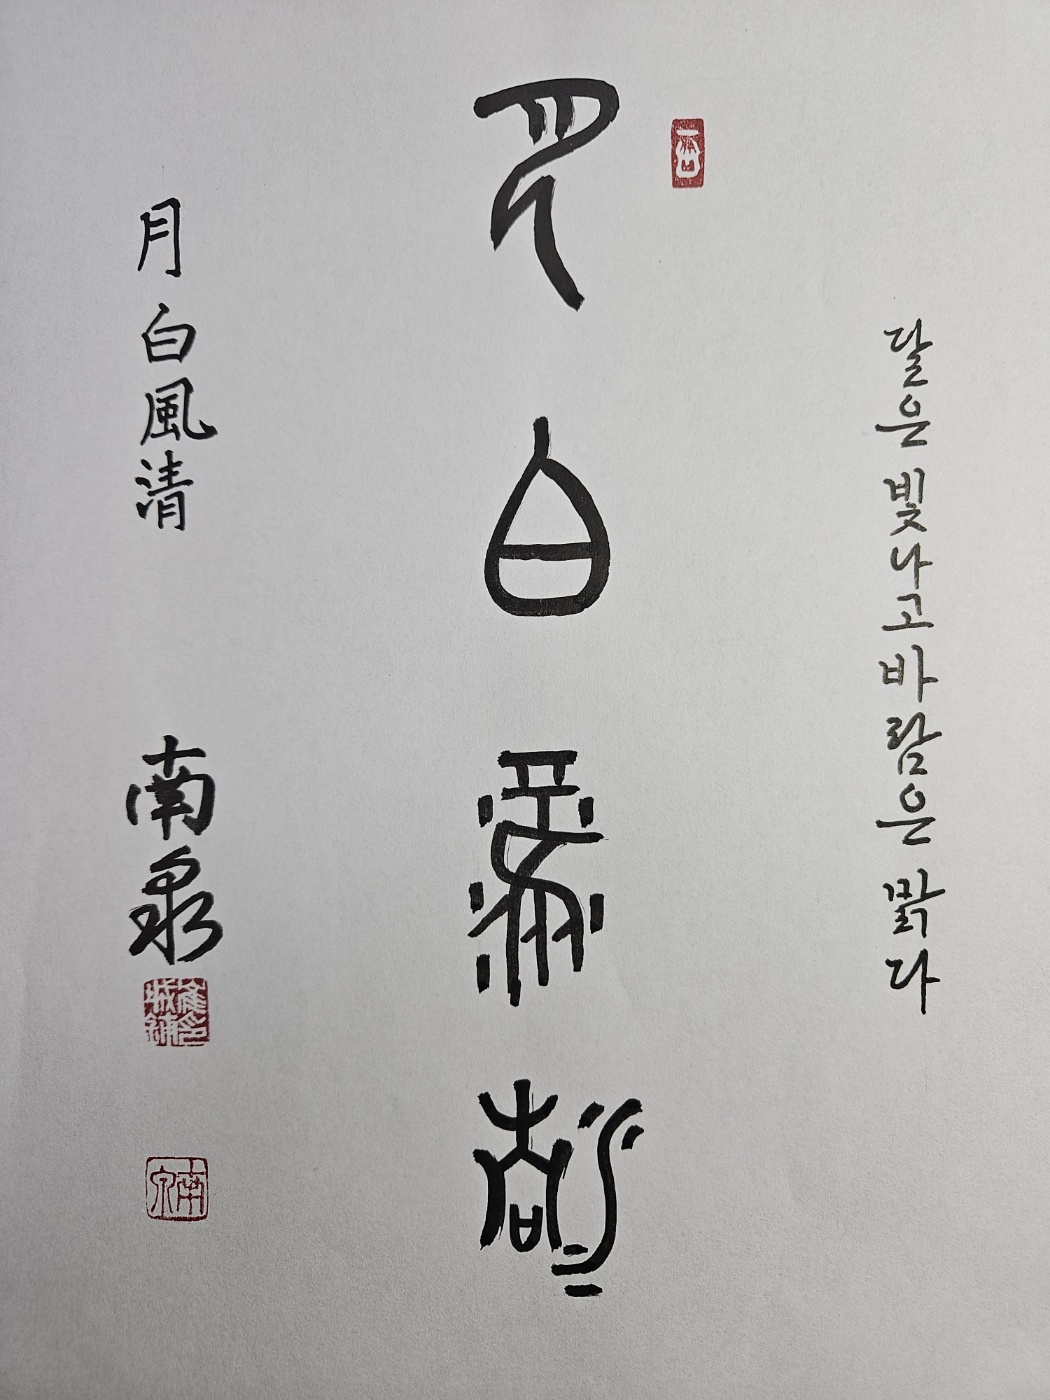 달은 빛나고 바람은 맑다
月白風淸
月白風清
南泉
南泉